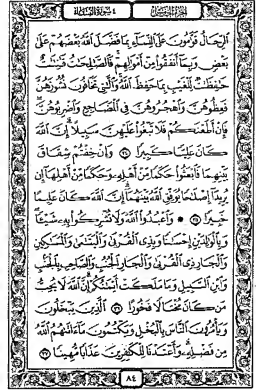 الجزء الخامس ٤ سورة النساء
الرجال قوامون على النساء بما فضل الله بعضهم على
بعض وبما أنفقوا من أموالهم فالصالحات قانتات
حافظات للغيب بما حفظ الله والتي تخافون نشوزهن
فعظوهن واهجروهن في المضاجع واضربوهن
فإن أطعنكم فلا تبغوا عليهن سبيلا إن الله
كان عليا كبيرا ٣٤ وإن خفتم شقاق
بينهما فابعثوا حكما من أهله وحكما من أهلها إن
يريدا إصلاحا يوفق الله بينهما إن الله كان عليما
خبيرا ٣٥ واعبدوا الله ولا تشركوا به شيئا
وبالوالدين إحسانا وبذي القربى واليتامى والمساكين
والجار ذي القربى والجار الجنب والصاحب بالجنب
وابن السبيل وما ملكت أيمانكم إن الله لا يحب
من كان مختالا فخورا ٣٦ الذين يبخلون
ويأمرون الناس بالبخل ويكتمون ما آتاهم الله
من فضله وأعتدنا للكافرين عذابا مهينا ٣٧
٨٤